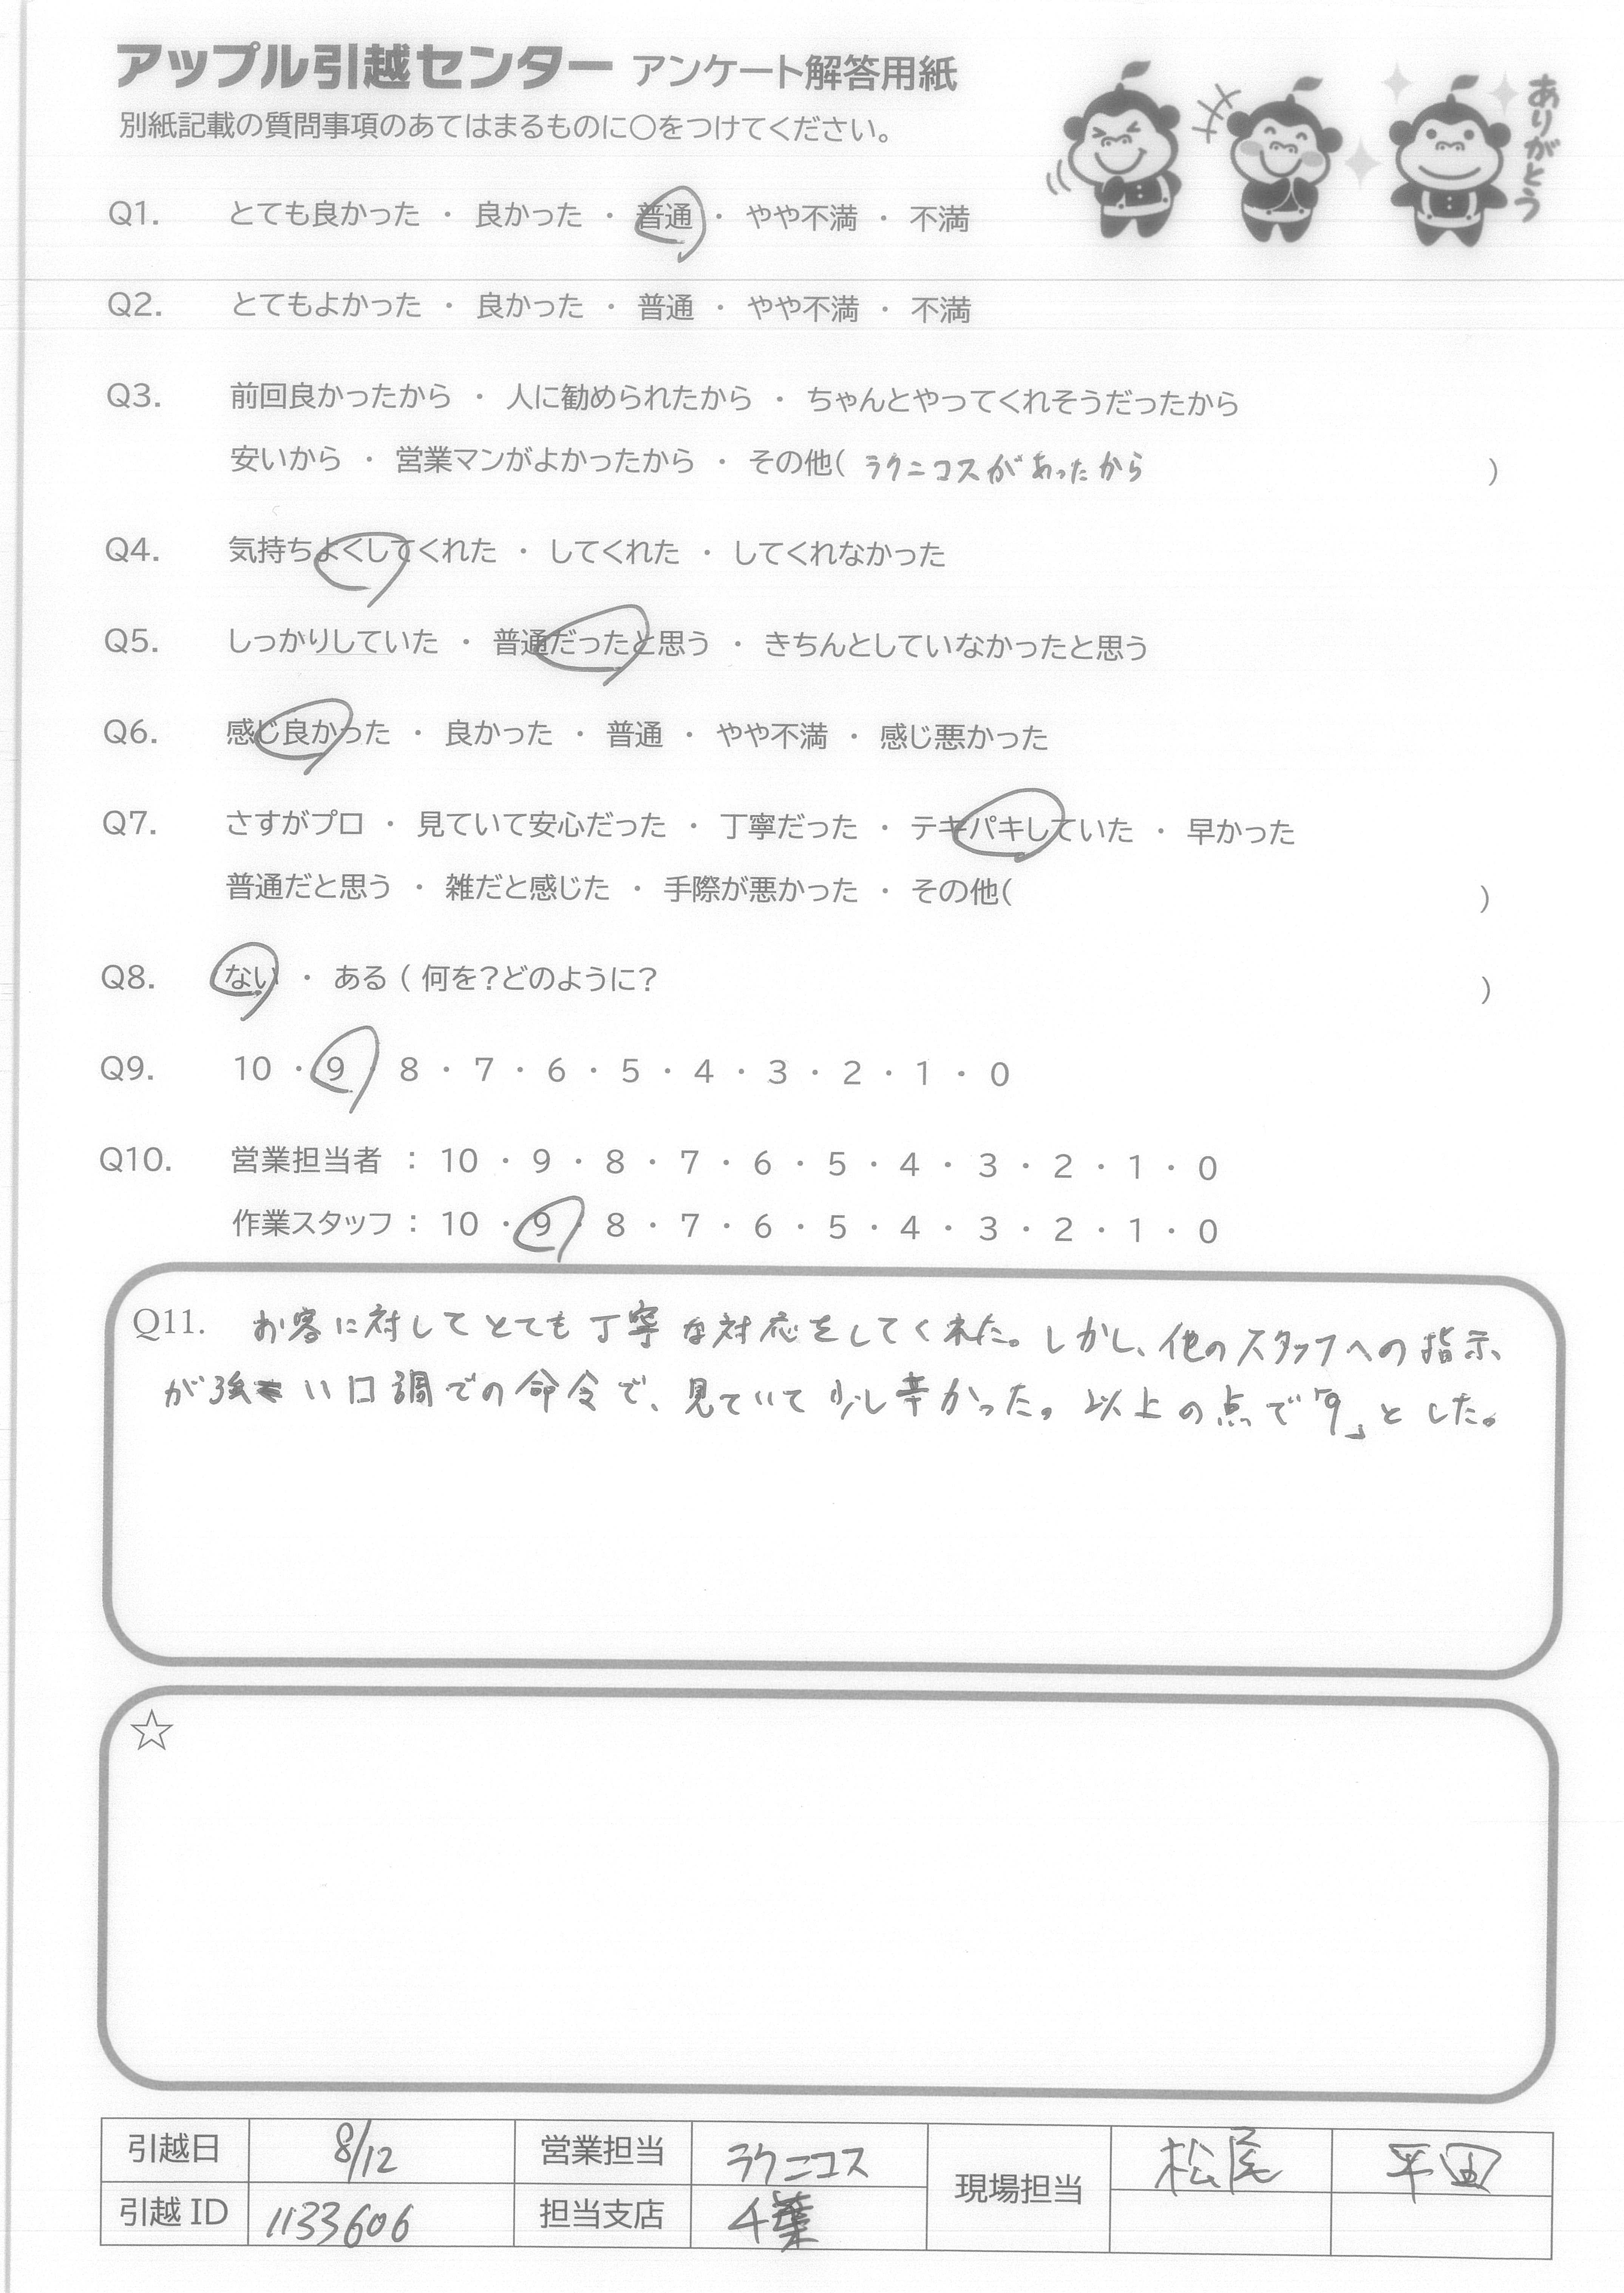 アップル引越センター アンケート解答用紙
ありがとう
別紙記載の質問事項のあてはまるものに〇をつけてください。
Q1. とても良かった ・ 良かった ・ 普通 ・ やや不満 ・ 不満
Q2. とてもよかった ・ 良かった ・ 普通 ・ やや不満 ・ 不満
Q3. 前回良かったから ・ 人に勧められたから ・ ちゃんとやってくれそうだったから
安いから ・ 営業マンがよかったから ・ その他( ラクニコスがあったから )
Q4. 気持ちよくしてくれた ・ してくれた ・ してくれなかった
Q5. しっかりしていた ・ 普通だったと思う ・ きちんとしていなかったと思う
Q6. 感じ良かった ・ 良かった ・ 普通 ・ やや不満 ・ 感じ悪かった
Q7. さすがプロ ・ 見ていて安心だった ・ 丁寧だった ・ テキパキしていた ・ 早かった
普通だと思う ・ 雑だと感じた ・ 手際が悪かった ・ その他( )
Q8. ない ・ ある ( 何を?どのように? )
Q9. 10 ・ 9 ・ 8 ・ 7 ・ 6 ・ 5 ・ 4 ・ 3 ・ 2 ・ 1 ・ 0
Q10. 営業担当者 : 10 ・ 9 ・ 8 ・ 7 ・ 6 ・ 5 ・ 4 ・ 3 ・ 2 ・ 1 ・ 0
作業スタッフ : 10 ・ 9 ・ 8 ・ 7 ・ 6 ・ 5 ・ 4 ・ 3 ・ 2 ・ 1 ・ 0
Q11. お客に対してとても丁寧な対応をしてくれた。しかし、他のスタッフへの指示
が強い口調での命令で、見ていて少し辛かった。以上の点で「9」とした。
☆
引越日 8/12 営業担当 ラクニコス 現場担当 松尾 平田
引越 ID 1133606 担当支店 千葉